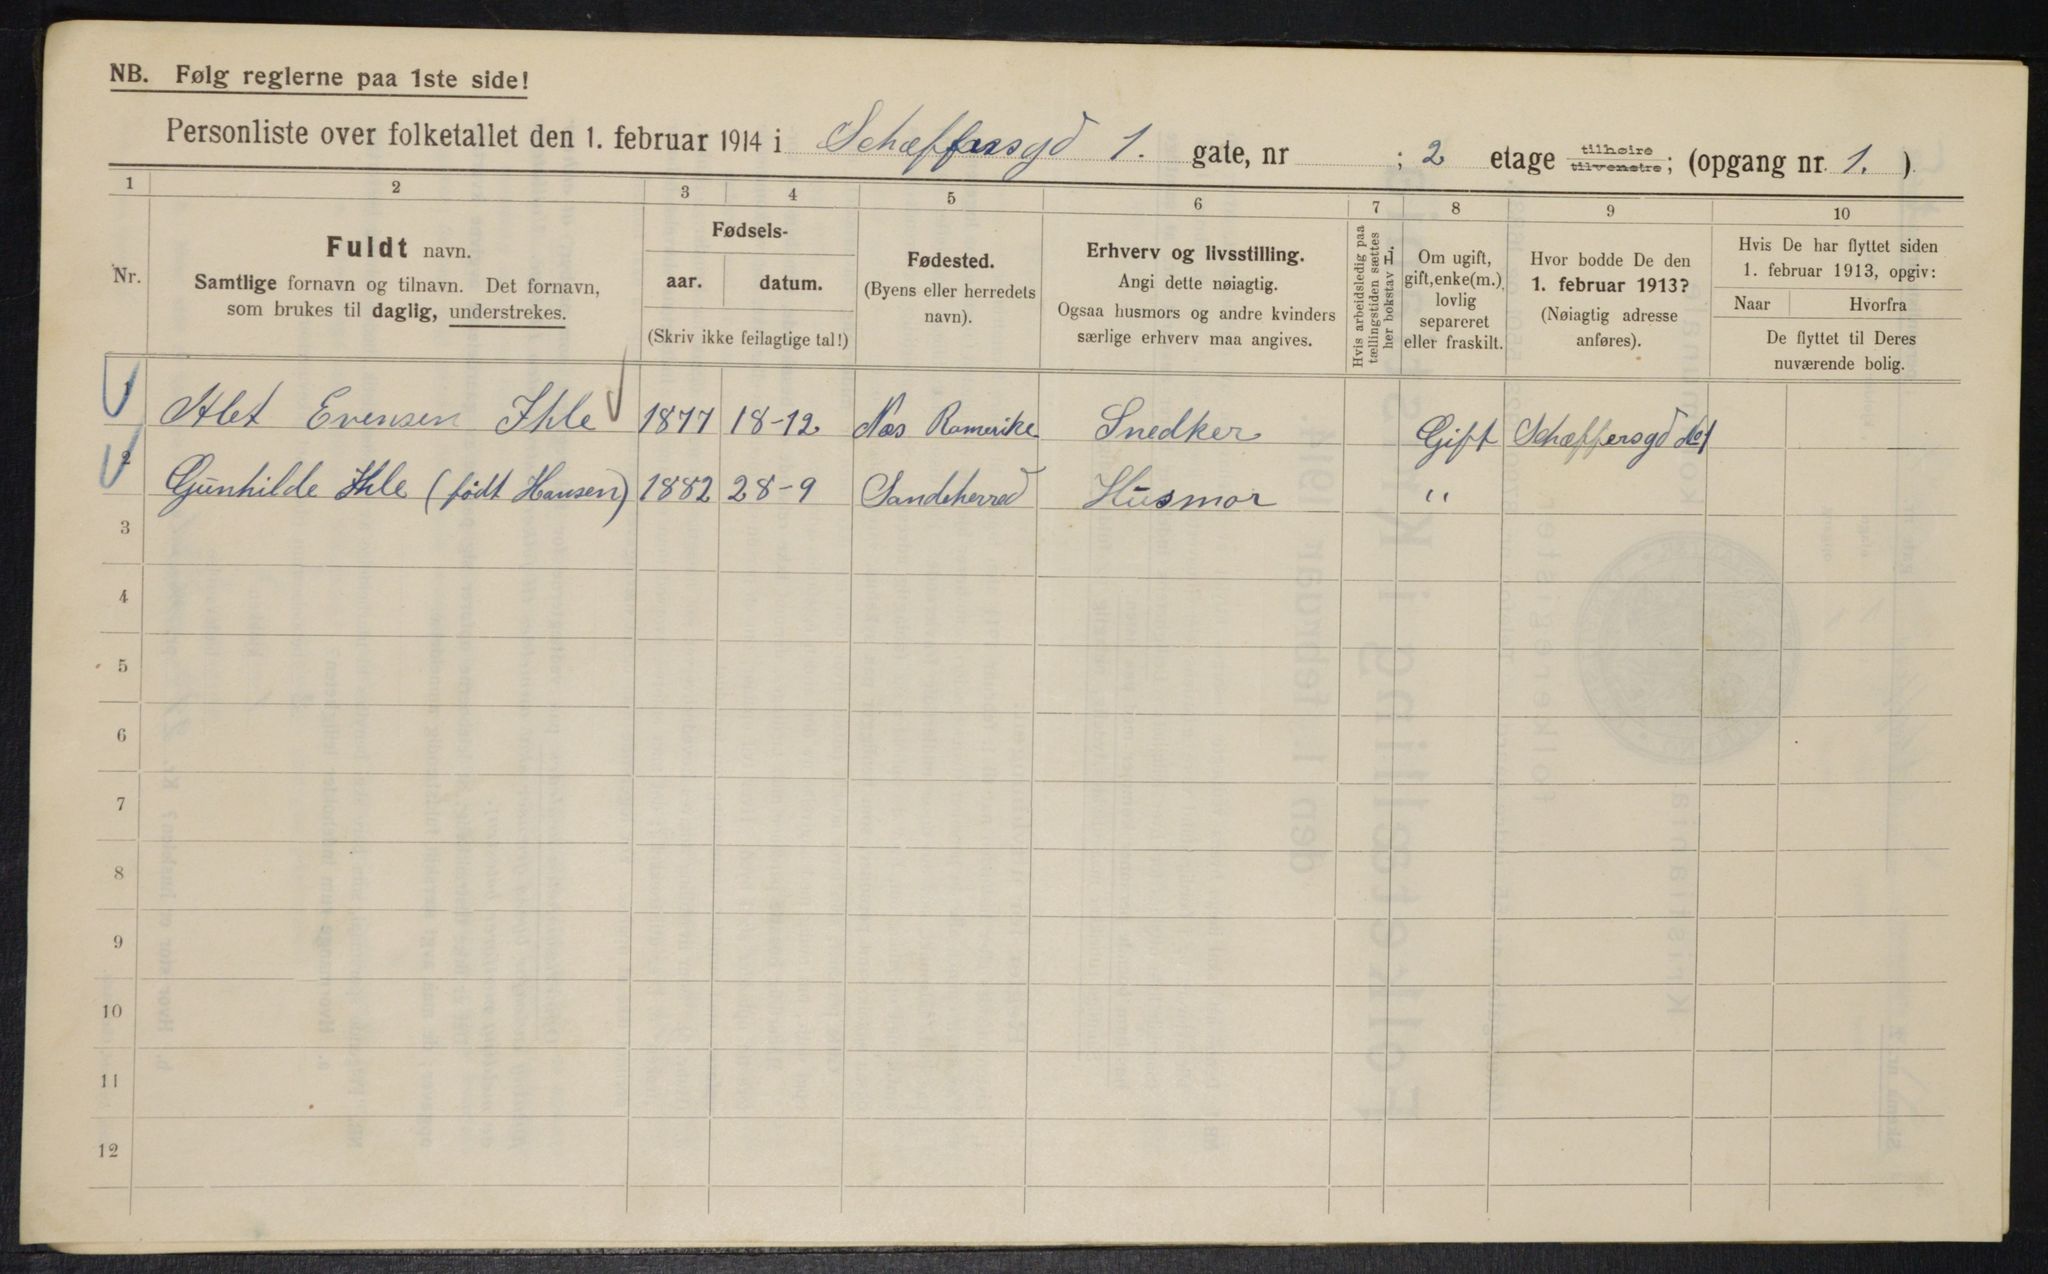 NB. Følg reglerne paa 1ste side!
Personliste over folketallet den 1. februar 1914 i Schæffersgd 1. gate, nr ; 2 etage tilhøire tilvenstre; (opgang nr. 1. )
1 2 3 4 5 6 7 8 9 10
Nr.
Fuldt navn.
Samtlige fornavn og tilnavn. Det fornavn,
som brukes til daglig, understrekes.
Fødsels-
aar. datum.
(Skriv ikke feilagtige tal!)
Fødested.
(Byens eller herredets
navn).
Erhverv og livsstilling.
Angi dette nøiagtig.
Ogsaa husmors og andre kvinders
særlige erhverv maa angives.
Hvis arbeidsledig paa
tællingstiden sættes
her bokstav L.
Om ugift,
gift, enke(m.)
lovlig
separeret
eller fraskilt.
Hvor bodde De den
1. februar 1913?
(Nøiagtig adresse
anføres).
Hvis De har flyttet siden
1. februar 1913, opgiv:
Naar Hvorfra
De flyttet til Deres
nuværende bolig.
1 Alet Evensen Ihle 1877 18-12 Næs Romerike Snedker Gift Schæffersgd No 1
2 Gunhilde Ihle (født Hansen) 1882 28-9 Sandeherred Husmor "
3
4
5
6
7
8
9
10
11
12